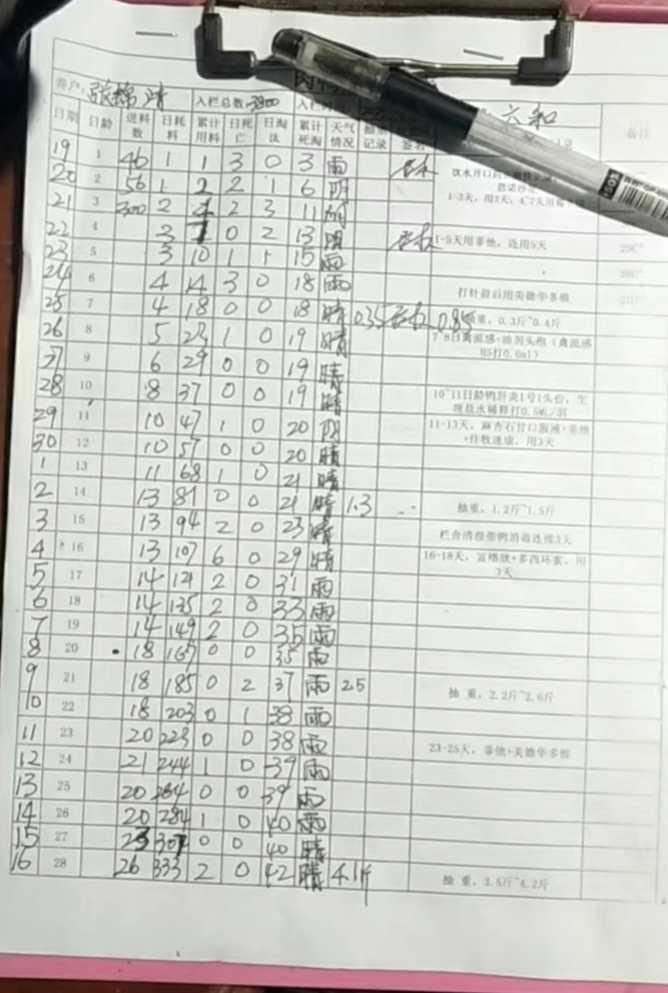 养户: 入栏总数 3800 六和
日期 日龄 进料数 日耗料 累计用料 日死亡 日淘汰 累计死淘 天气情况 抽重记录 签名 备注
19 1 46 1 1 3 0 3 雨
20 2 56 1 2 2 1 6 阴
21 3 300 2 4 2 3 11 1-3天,用3天,4-7天用
22 4 3 7 0 2 13 晴 1-5天用 连用5天
23 5 3 10 1 1 15 雨
24 6 4 14 3 0 18 雨 打针前后用美德华多维
25 7 4 18 0 0 18 晴 0.35 0.85 重,0.3斤~0.4斤
26 8 5 23 1 0 19 晴 7-8日禽流感+油剂头孢(禽流感H5打0.6ml)
27 9 6 29 0 0 19 晴
28 10 8 37 0 0 19 晴 10-11日龄鸭肝炎1号1头份,生理盐水稀释打0.5ML/羽
29 11 10 47 1 0 20 阴 11-13天,麻杏石甘口服液
30 12 10 57 0 0 20 晴 用3天
1 13 11 68 1 0 21 晴
2 14 13 81 0 0 21 晴 1.3 抽重,1.2斤~1.5斤
3 15 13 94 2 0 23 晴 栏舍清粪带鸭消毒连续3天
4 16 13 107 6 0 29 晴 16-18天, 多西环素,用3天
5 17 14 121 2 0 31 雨
6 18 14 135 2 0 33 雨
7 19 14 149 2 0 35 雨
8 20 18 167 0 0 35 雨
9 21 18 185 0 2 37 雨 2.5 抽 重,2.2斤~2.6斤
10 22 18 203 0 1 38 雨
11 23 20 223 0 0 38 雨 23-25天, 美德华多维
12 24 21 244 1 0 39 雨
13 25 20 264 0 0 39 雨
14 26 20 284 1 0 40 雨
15 27 23 307 0 0 40 晴
16 28 26 333 2 0 42 晴 抽 重,3.5斤~4.2斤